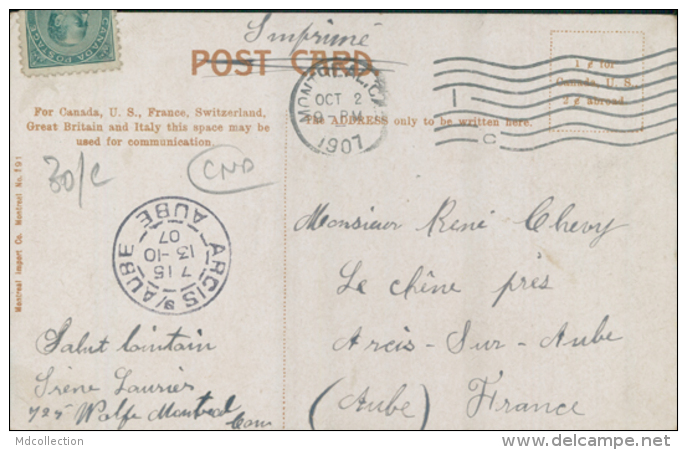 CANADA POSTAGE
Imprimé
POST CARD
1¢ for
Canada, U. S.
2¢ abroad.
MONTREAL
OCT 2
PM
1907
For Canada, U. S., France, Switzerland,
Great Britain and Italy this space may be
used for communication.
The ADDRESS only to be written here.
30/c
CND
Montreal Import Co. Montreal No. 191
ARCIS S/AUBE
AUBE
7 15
13 -10
07
Monsieur René Chevy
Le chêne près
Arcis-Sur-Aube
(Aube) France
Salut lointain
Irène Laurier
725 Wolfe Montreal
Can
Mdcollection
www.delcampe.net